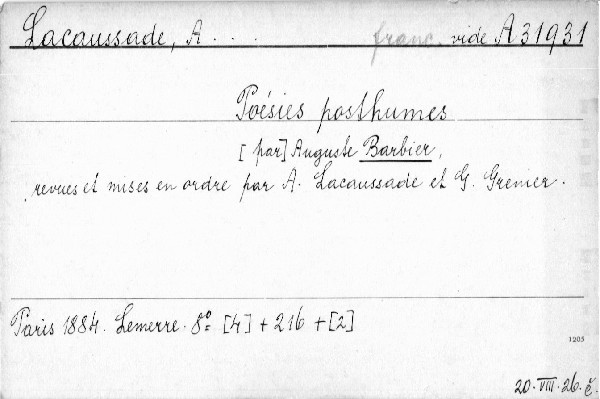 Lacaussade, A . . . franc. vide A 31931
Poésies posthumes
[par] Auguste Barbier,
revues et mises en ordre par A. Lacaussade et G. Grenier.
Paris 1884. Lemerre. 8º [4] + 216 + [2]
1205
20. VIII. 26. č.